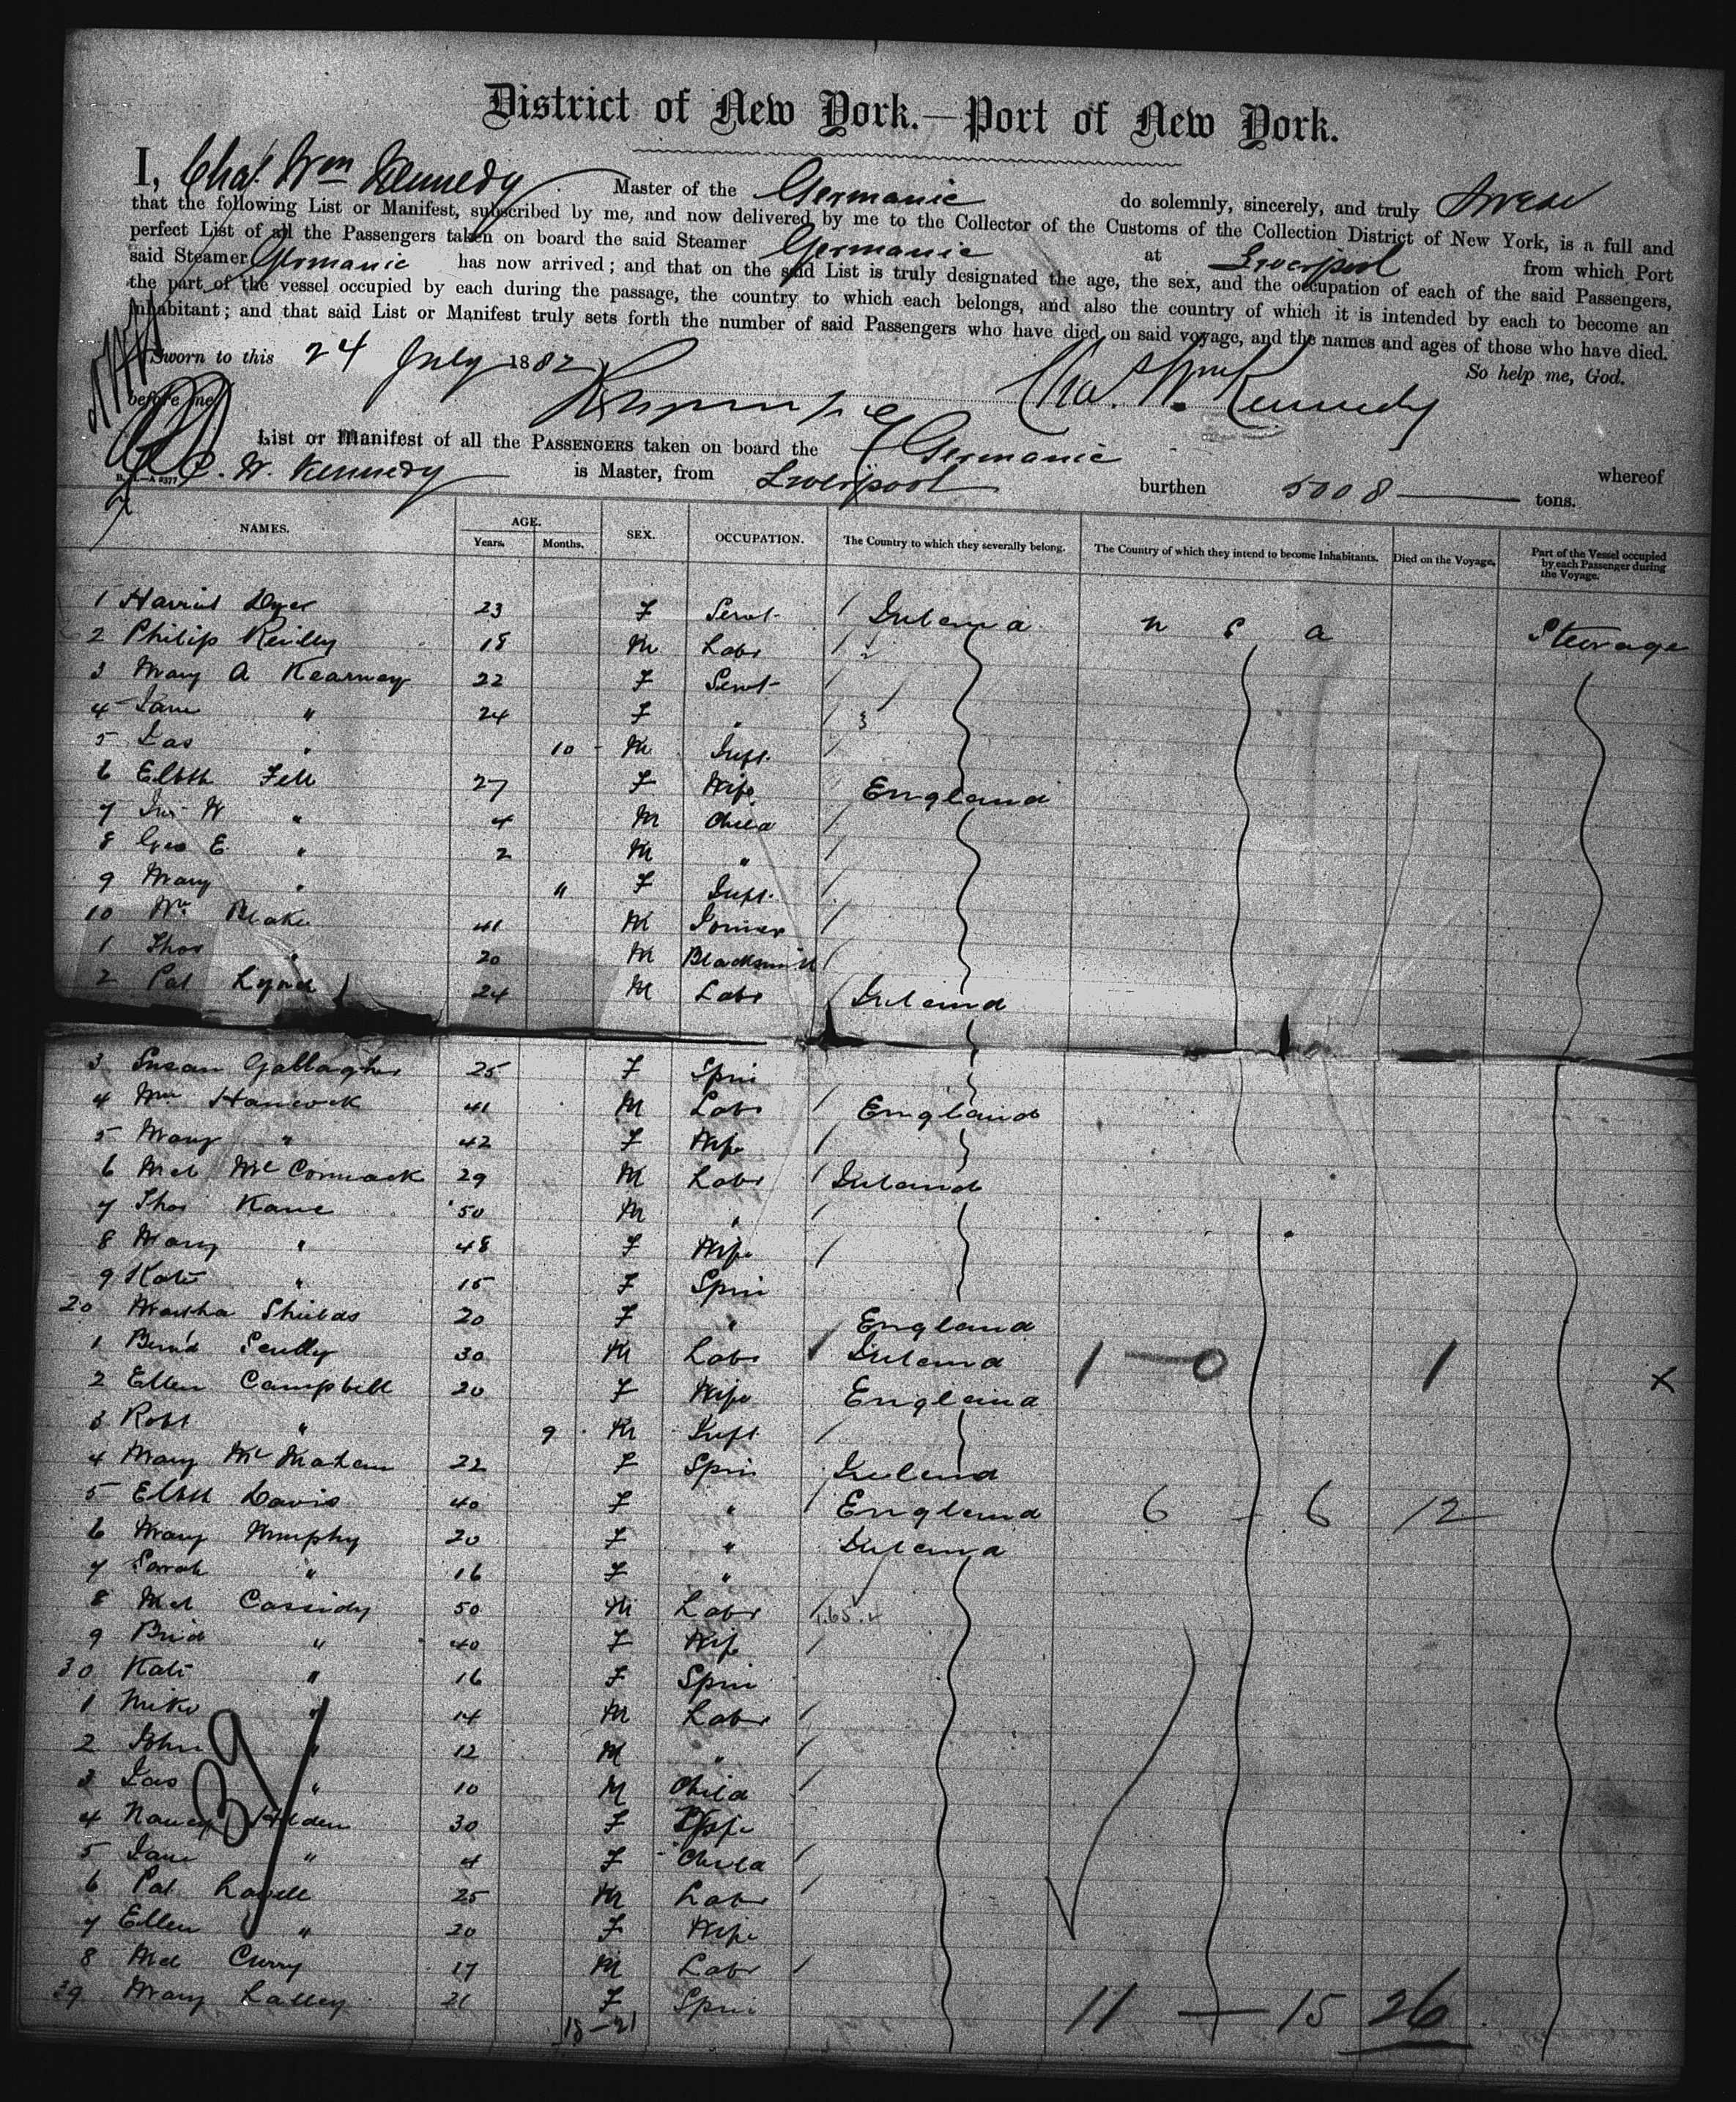 District of New York.—Port of New York.
I, Chas. Wm Kennedy Master of the Germanic do solemnly, sincerely, and truly Swear
that the following List or Manifest, subscribed by me, and now delivered by me to the Collector of the Customs of the Collection District of New York, is a full and
perfect List of all the Passengers taken on board the said Steamer Germanic at Liverpool from which Port
said Steamer Germanic has now arrived; and that on the said List is truly designated the age, the sex, and the occupation of each of the said Passengers,
the part of the vessel occupied by each during the passage, the country to which each belongs, and also the country of which it is intended by each to become an
inhabitant; and that said List or Manifest truly sets forth the number of said Passengers who have died on said voyage, and the names and ages of those who have died.
Sworn to this 24 July 1882 So help me, God.
before me Chas. Wm Kennedy
List or Manifest of all the PASSENGERS taken on board the Germanic whereof
C. W. Kennedy is Master, from Liverpool burthen 5008 tons.
NAMES. AGE. Years. Months. SEX. OCCUPATION. The Country to which they severally belong. The Country of which they intend to become Inhabitants. Died on the Voyage. Part of the Vessel occupied by each Passenger during the Voyage.
1 Harriet Dyer 23 F Servt Ireland U S A Steerage
2 Philip Reilly 18 M Labr
3 Mary A Kearney 22 F Servt
4 Jane " 24 F "
5 Jas " 10 M Inft.
6 Elbth Fell 27 F Wife England
7 Jno W " 4 M Child
8 Geo E. " 2 M "
9 Mary " 11 F Inft.
10 Wm Blake 41 M Joiner
1 Thos " 20 M Blacksmith
2 Pat Lynch 24 M Labr Ireland
3 Susan Gallagher 25 F Spin
4 Wm Hancock 41 M Labr England
5 Mary " 42 F Wife
6 Mch McCormack 29 M Labr Ireland
7 Thos Kane 50 M "
8 Mary " 48 F Wife
9 Kate " 15 F Spin
20 Martha Shields 20 F " England
1 Bernd Scully 30 M Labr Ireland 1 — 0 1
2 Ellen Campbell 20 F Wife England x
3 Robt " 9 M Inft
4 Mary McMahon 22 F Spin Ireland
5 Elbth Davis 40 F " England 6 - 6 12
6 Mary Murphy 20 F " Ireland
7 Sarah " 16 F "
8 Mch Cassidy 50 M Labr
9 Brid " 40 F Wife
30 Kate " 16 F Spin
1 Mike " 14 M Labr
2 John " 12 M "
3 Jas " 10 M Child
4 Nancy Holden 30 F Wife
5 Jane " 4 F Child
6 Pat Lavelle 25 M Labr
7 Ellen " 20 F Wife
8 Mch Curry 17 M Labr
39 Mary Lalley 21 F Spin 11 — 15 26
18 — 21
39/